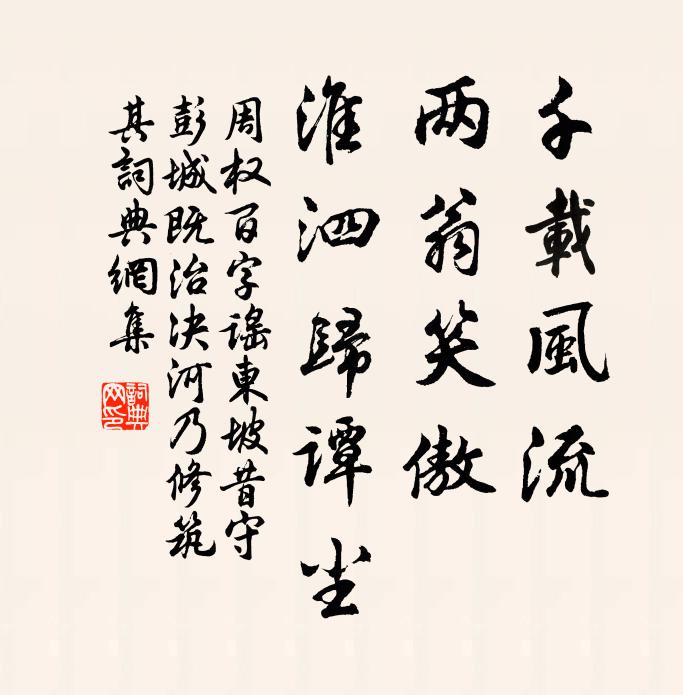 千載風流
两翁笑傲
淮泗歸譚尘
周权百字謠東坡昔守
彭城既治决河乃修筑
其詞典網集
詞典
网印